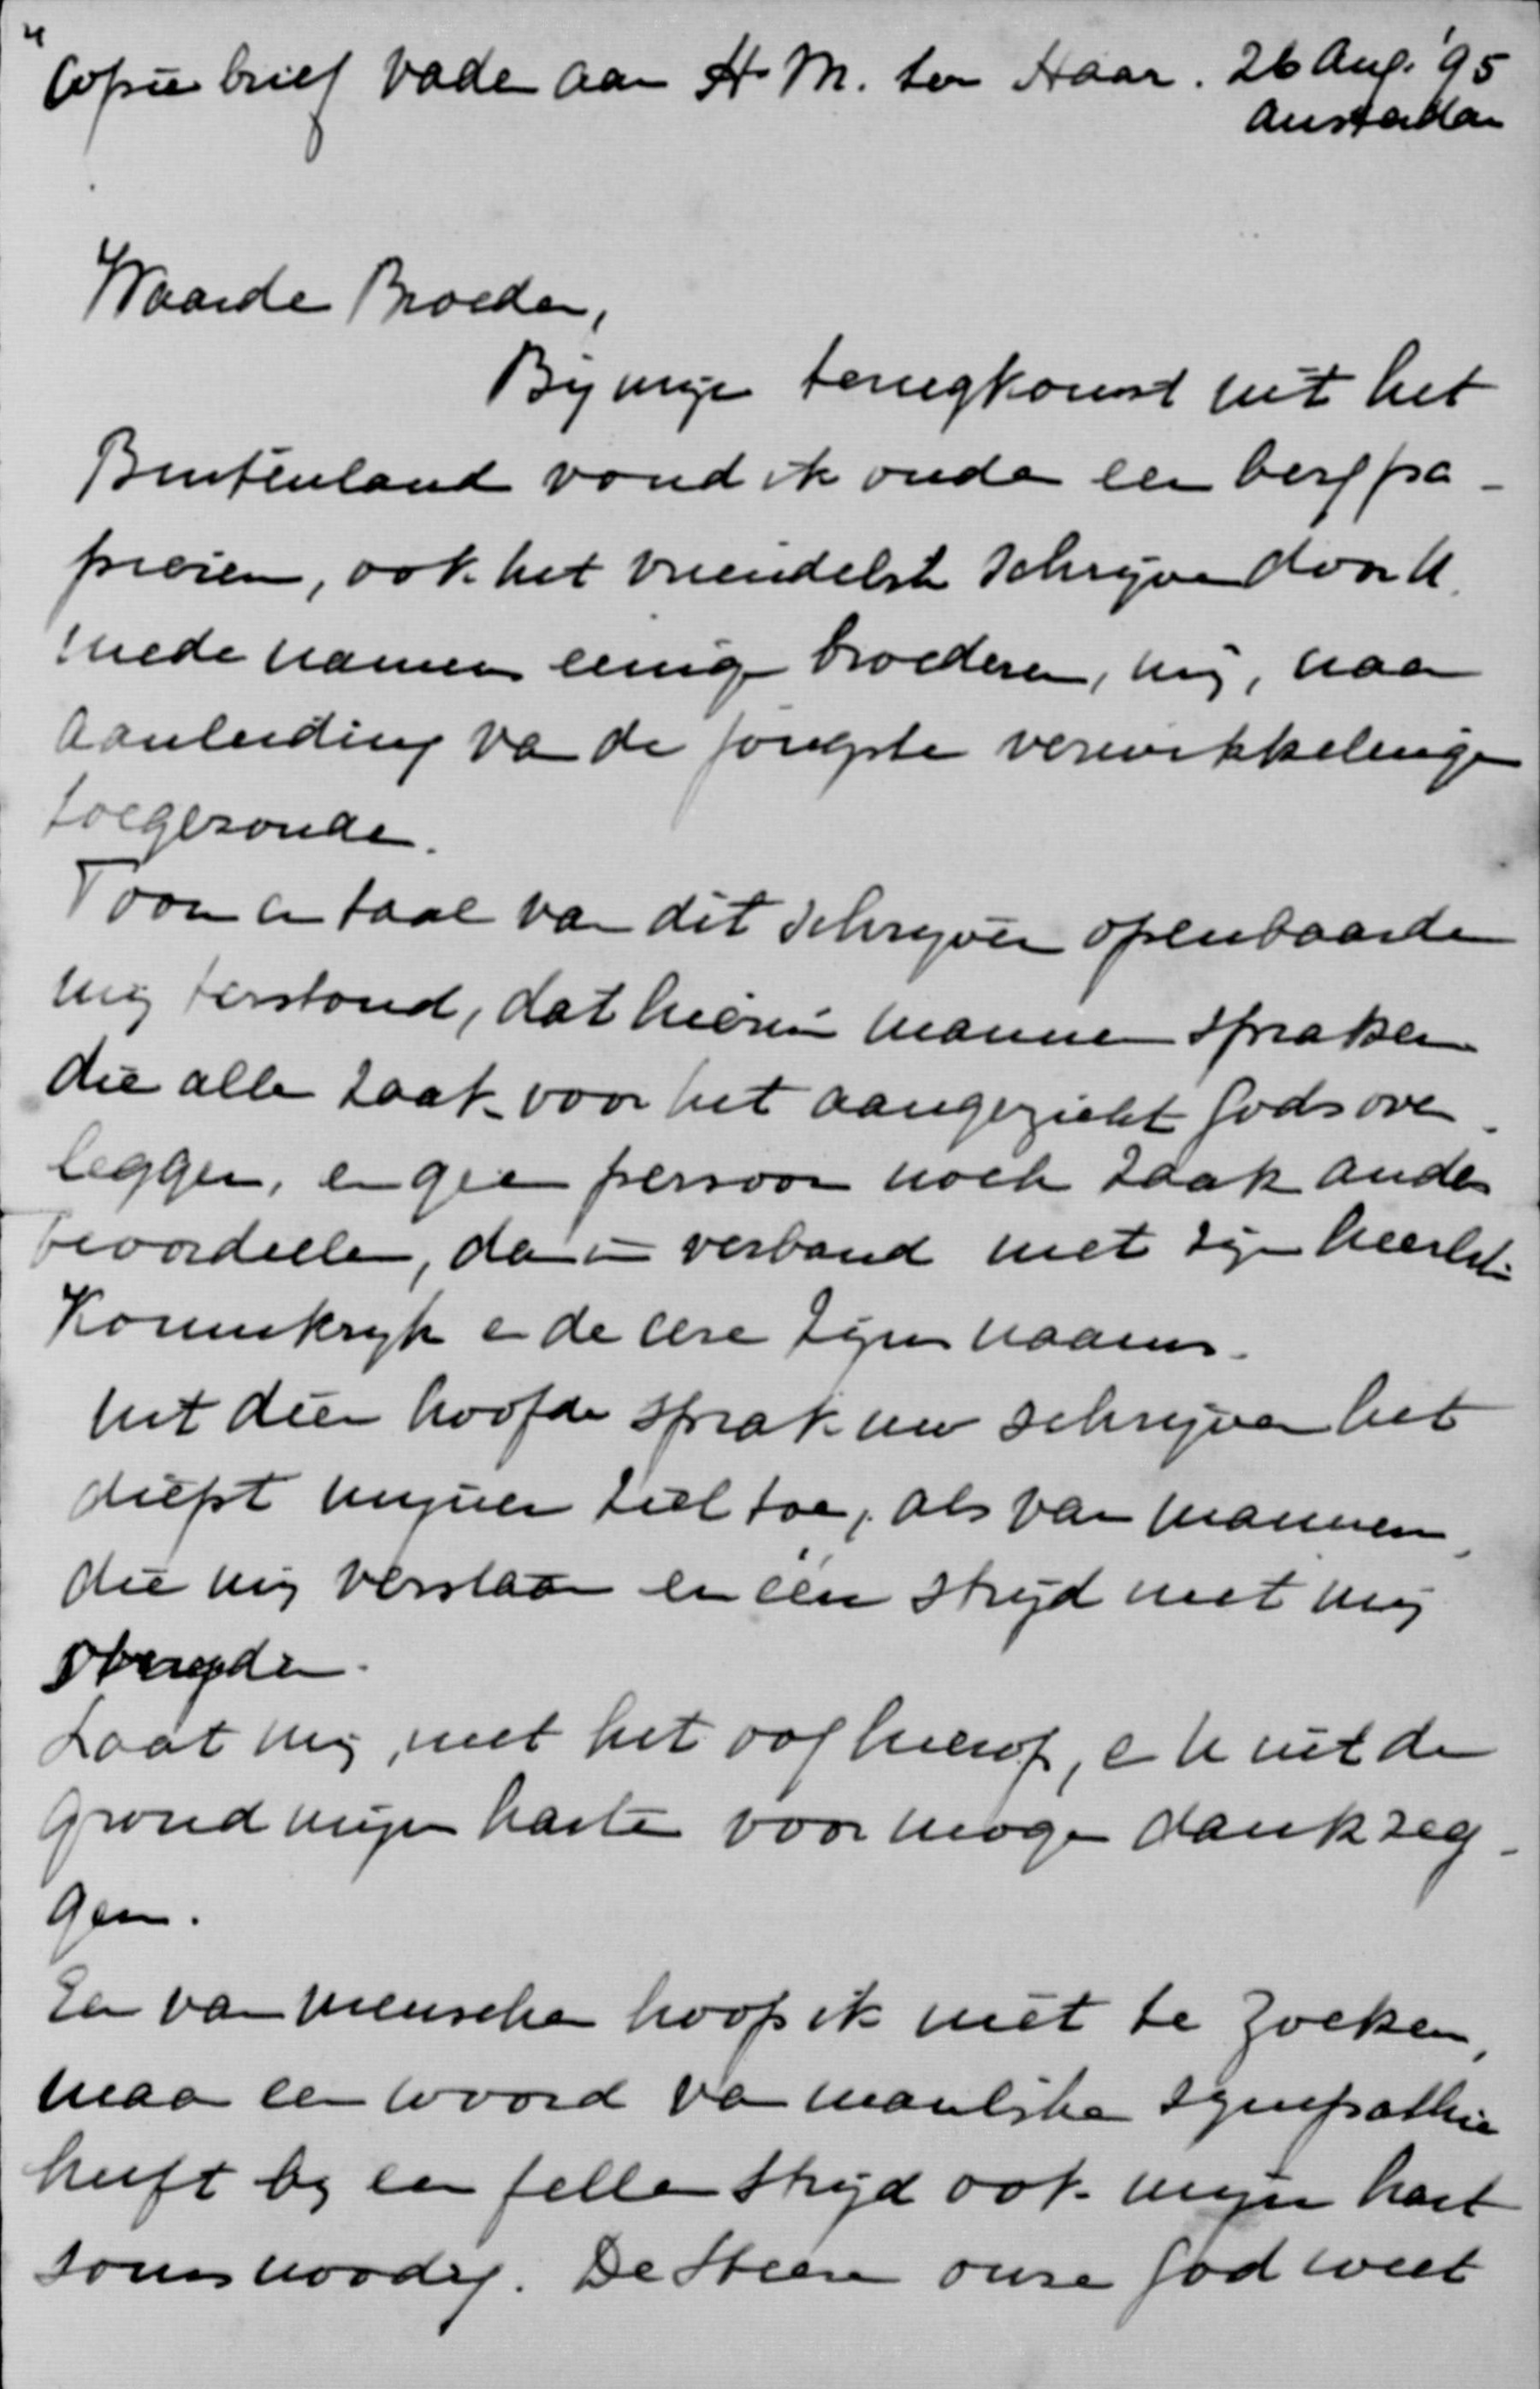 Copie brief Vader aan H. M. ter Haar. 26 Aug. '95
Amsterdam
Waarde Broeder,
Bij mijn terugkomst uit het
Buitenland vond ik onder een berg pa-
pieren, ook het vriendelijk schrijven door U.
mede namens eenige broederen, mij, naar
aanleiding van de jongste verwikkelingen
toegezonden.
Toon en taal van dit schrijven openbaarde
mij terstond, dat hierin mannen spraken
die alle zaak voor het aangezicht Gods over-
leggen, en geen persoon noch zaak anders
beoordeelen, dan in verband met zijn heerlijk
Koninkrijk en de eere Zijns naams.
Uit dien hoofde sprak uw schrijven het
diepst mijner ziel toe, als van mannen,
die mij verstaan en één strijd met mij
strijden.
Laat mij, met het oog hierop, er U uit den
grond mijns harten voor mogen dank zeg-
gen.
Eer van menschen hoop ik niet te zoeken,
maar een woord van manlijke sympathie
heeft bij een fellen strijd ook mijn hart
soms noodig. De Heere onze God weet